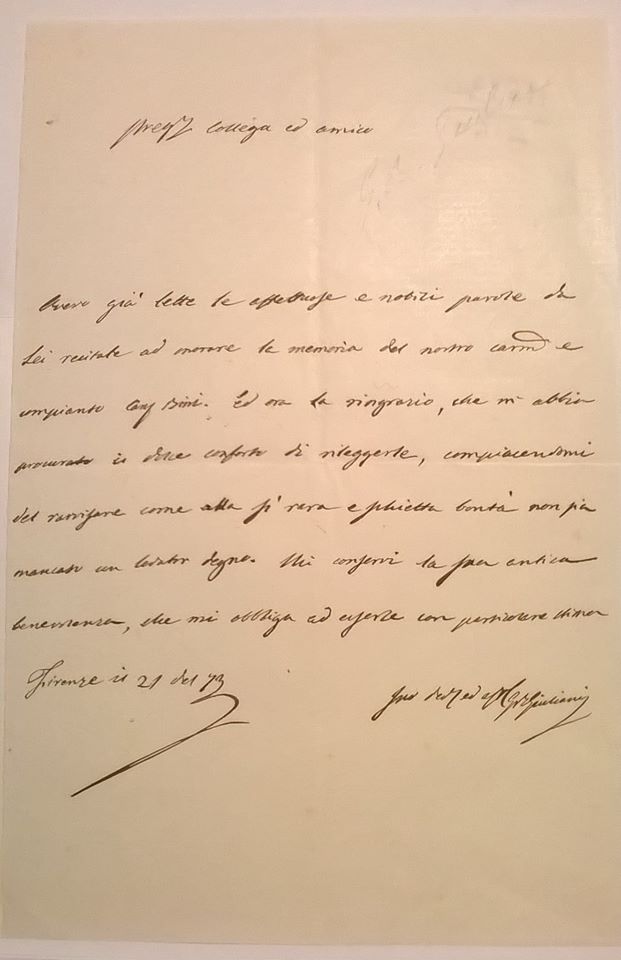 Preg. Collega ed amico
Avevo già lette le affettuose e nobili parole da
Lei recitate ad onorare la memoria del nostro carmo e
compianto Bini. Ed ora La ringrazio, che m' abbia
procurato il dolce conforto di rileggerle, compiacendomi
del ravvisare come alla sì rara e schietta bontà non sia
mancato un lodator degno. Mi conservi la sua antica
benevolenza, che mi obbliga ad esserle con particolare stima
Firenze il 21 del 73
Suo ed Giuliani